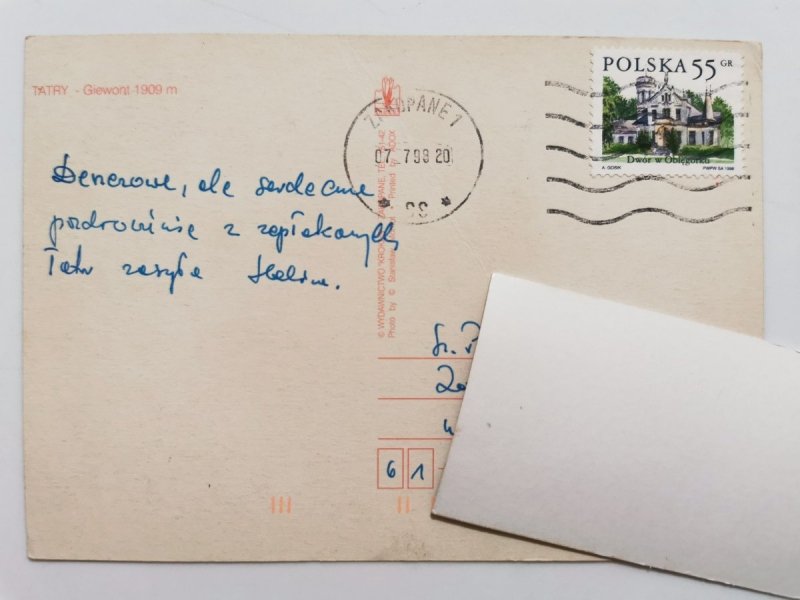 TATRY - Giewont 1909 m
POLSKA 55 GR
Dwór w Oblęgorku
PWPW SA 1998
ZAKOPANE 1
07. 7 99 20
Deszczowe, ale serdeczne
pozdrowienia z zapłakanych
Tatr zasyła Halina.
© WYDAWNICTWO "KROK" ZAKOPANE
Photo by © Stanisław
Printed by ADOX
61